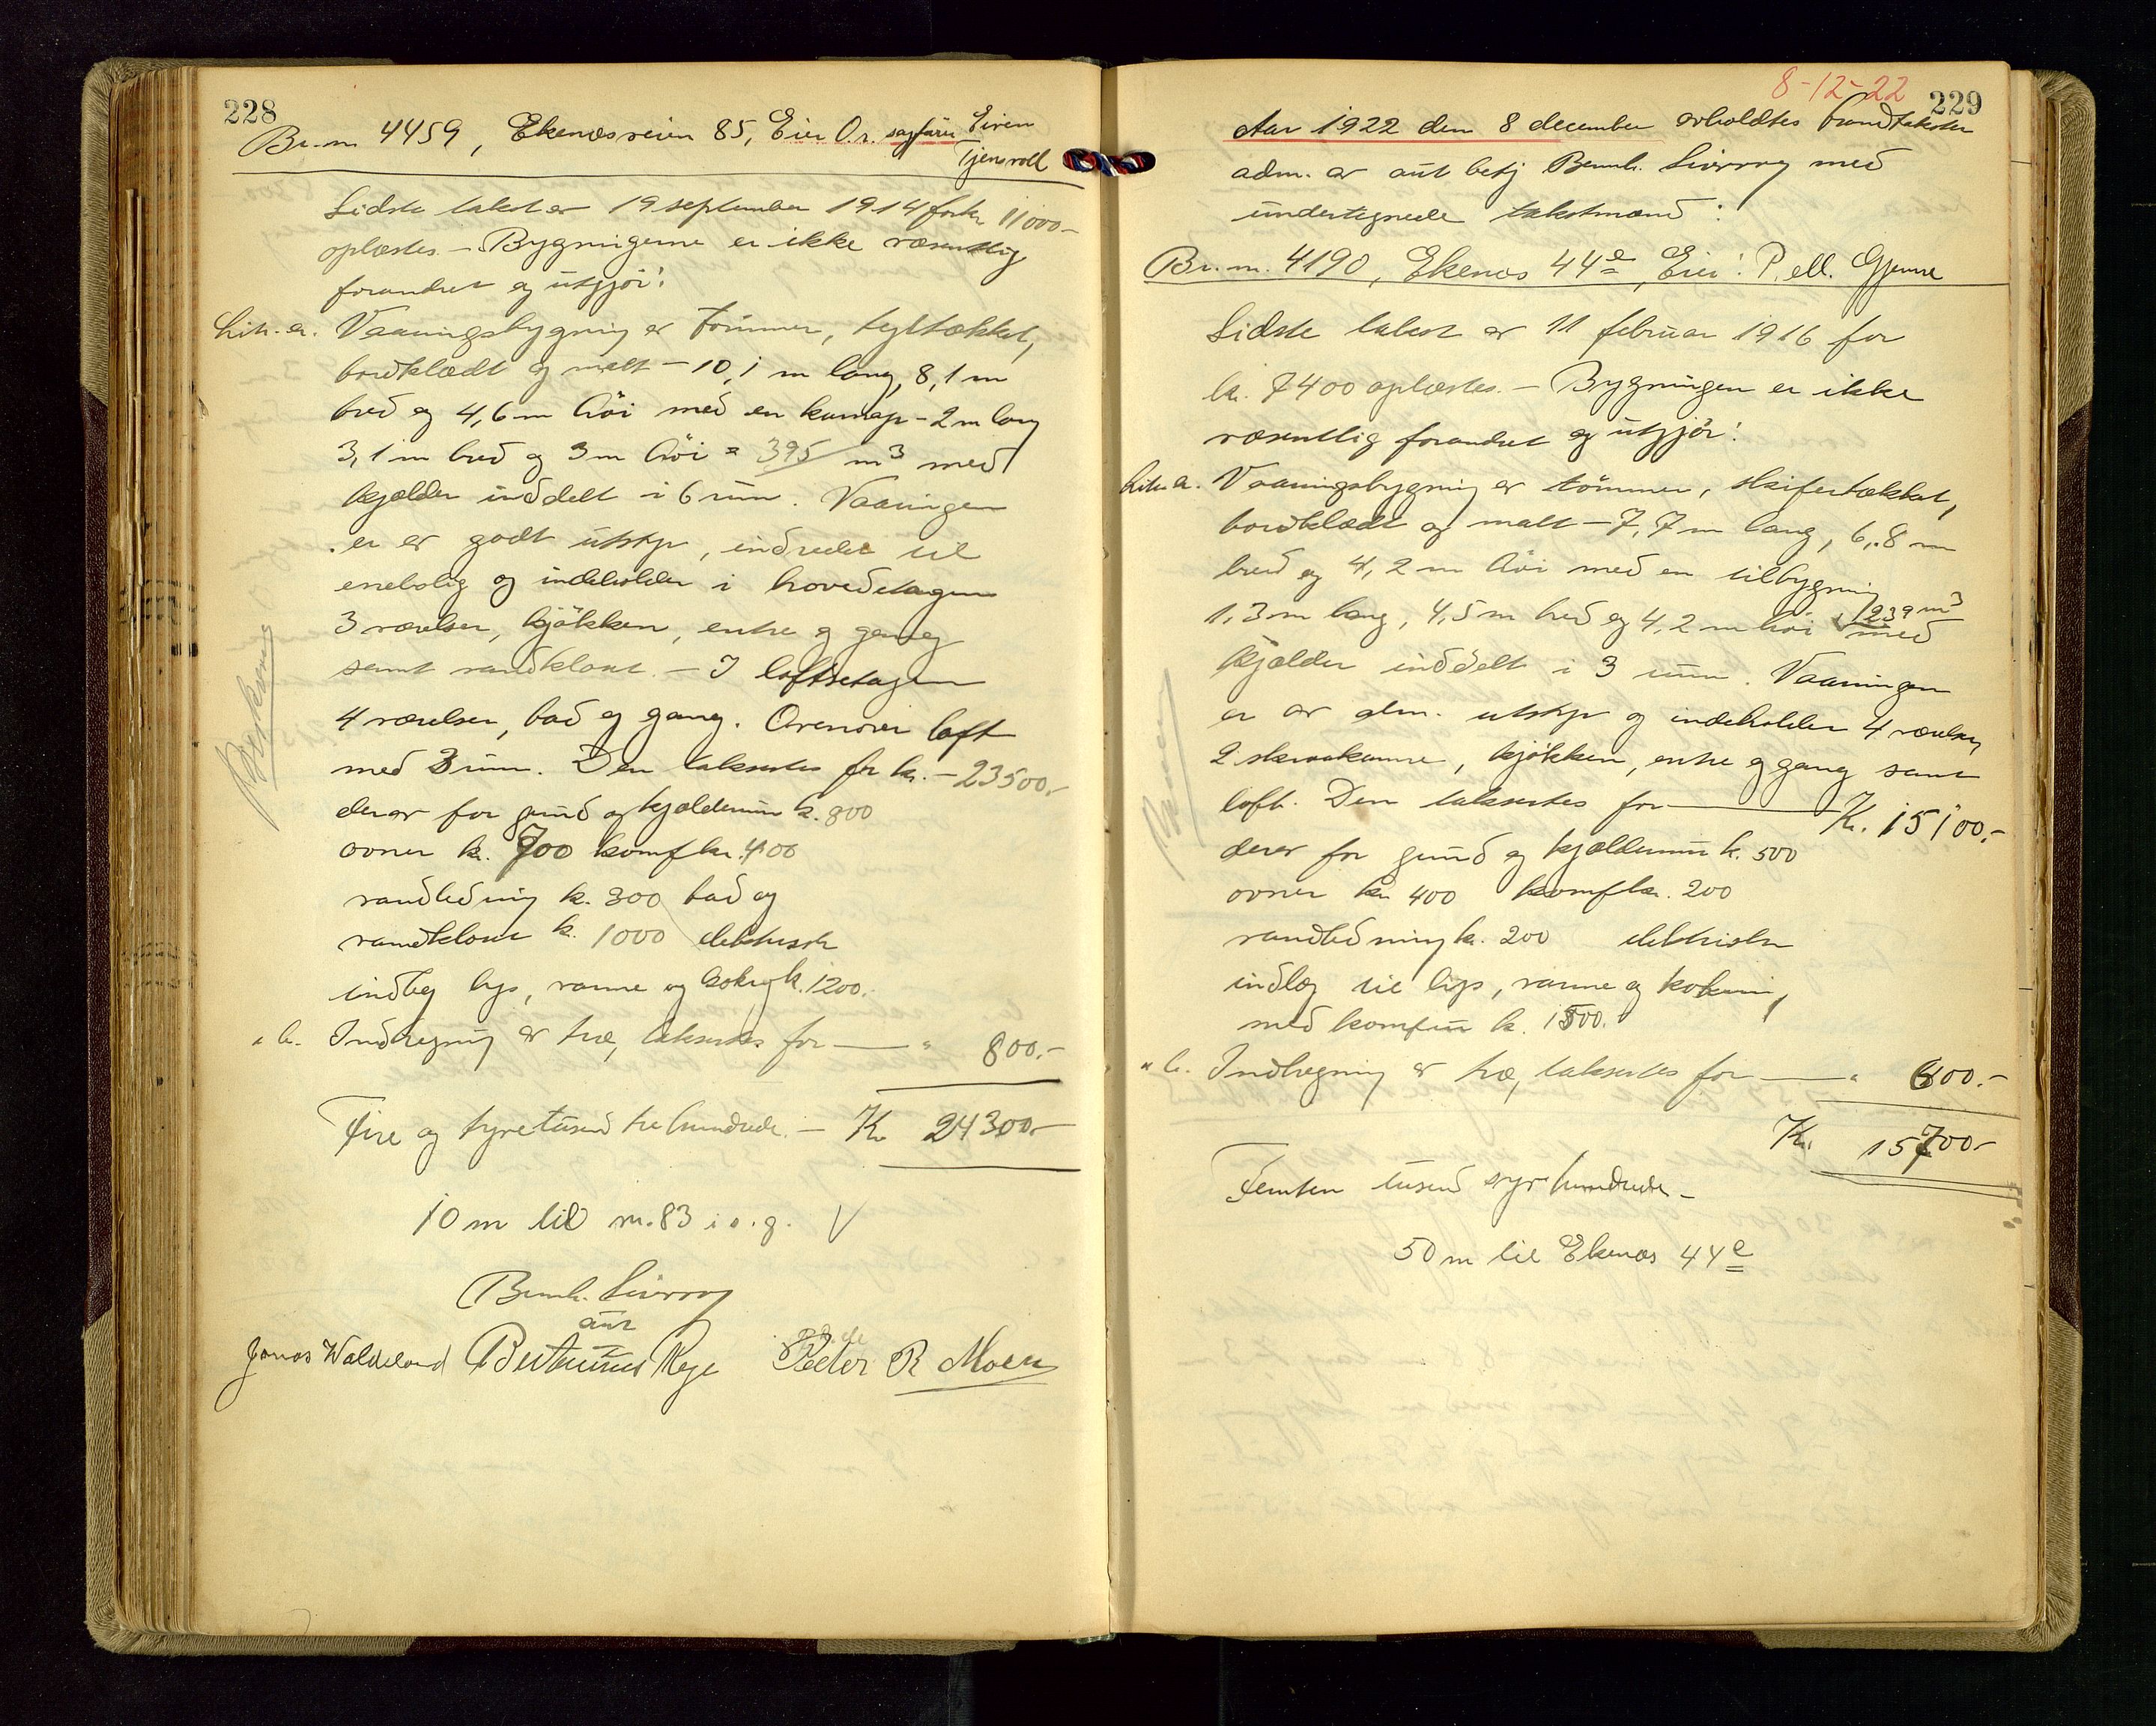 228
Br.nr. 4459, Ekenæsveien 85, Eier O.r. sagfører Eiven
Tjensvoll
Sidste takst av 19 september 1914 for kr 11000-
oplæstes. - Bygningerne er ikke væsentlig
forandret og utgjør:
Litr. a. Vaaningsbygning av tømmer, tegltækket,
bordklædt og malt - 10,1 m lang, 8,1 m
bred og 4,6 m høi med en kvist - 2 m lang
3,1 m bred og 3 m høi = 395 m3 med
kjælder inddelt i 6 rum. Vaaningen
er av godt utstyr, indredet til
enebolig og indeholder i hovedetagen
3 værelser, kjøkken, entre og gang
samt vandklosset. - I loftsetagen
4 værelser, bad og gang. Ovenover loft
med 3 rum. Den takseres for kr. - 23500.-
derav for grund og kjælderrum k. 800
ovner k. 700 komf kr. 400
vandledning k. 300 bad og
vandkloset k. 1000 elektrisk
indlæg lys, varme og kokng k. 1200.
" b. Indhegning av træ, takseres for — " 800.-
Fire og tyve tusind tre hundrede. - Kr. 24300.-
10 m til nr. 83 i s. g. V
Bernh. Siversvoy
aut
Jonas Waldeland Bertinius Rege Peder R Moen
Beskoning
8-12-22
229
Aar 1922 den 8 december avholdtes brandtakster
adm. av aut betj Bernh. Siversvoy med
undertegnede takstmænd:
Br.nr. 4190, Ekenæs 44e, Eier: P. ell. Gjerne
Sidste takst av 11 februar 1916 for
kr. 7400 oplæstes. - Bygningen er ikke
væsentlig forandret og utgjør:
Litr. a. Vaaningsbygning av tømmer, skifertækket,
bordklædt og malt - 7,7 m lang, 6,8 m
bred og 4,2 m høi med en tilbygning
1,3 m lang, 4,5 m bred og 4,2 m høi = 239 m3 med
kjælder inddelt i 3 rum. Vaaningen
er av alm. utstyr og indeholder 4 værelser,
2 skraakamre, kjøkken, entre og gang samt
loft. Den takseres for — Kr. 15100.-
derav for grund og kjælderrum k. 500
ovner kr 400 komf kr. 200
vandledning k. 200 elektriske
indlæg til lys, varme og kokning,
med komfur k. 1500.
" b. Indhegning av træ, takseres for — " 600.-
Kr. 15700-
Femten tusind syv hundrede -
50 m til Ekenæs 44e